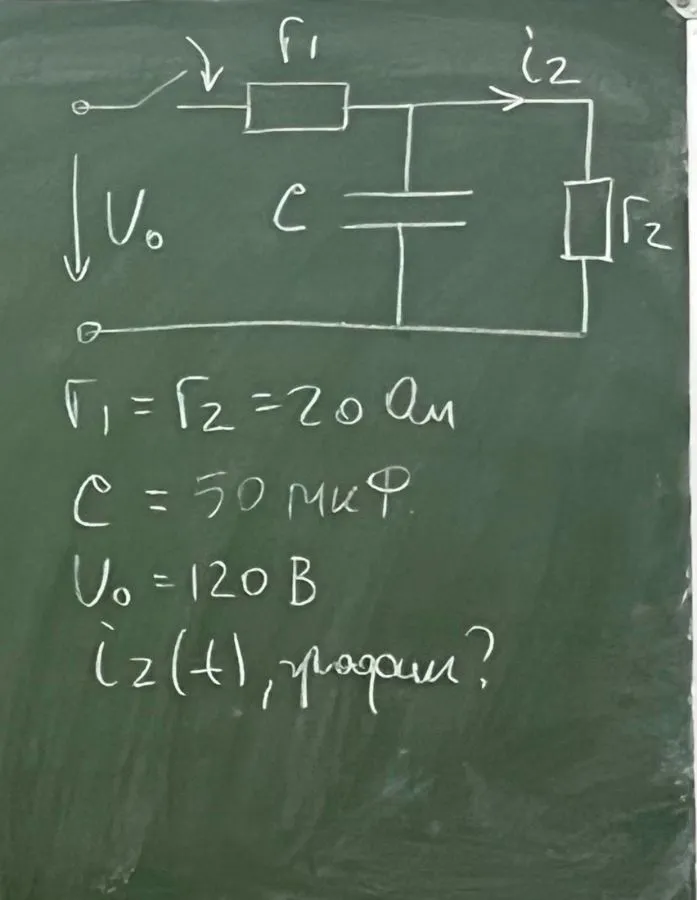 r₁
i₂
C
U₀
r₂
r₁ = r₂ = 20 Ом
C = 50 мкФ
U₀ = 120 В
i₂(t), график?